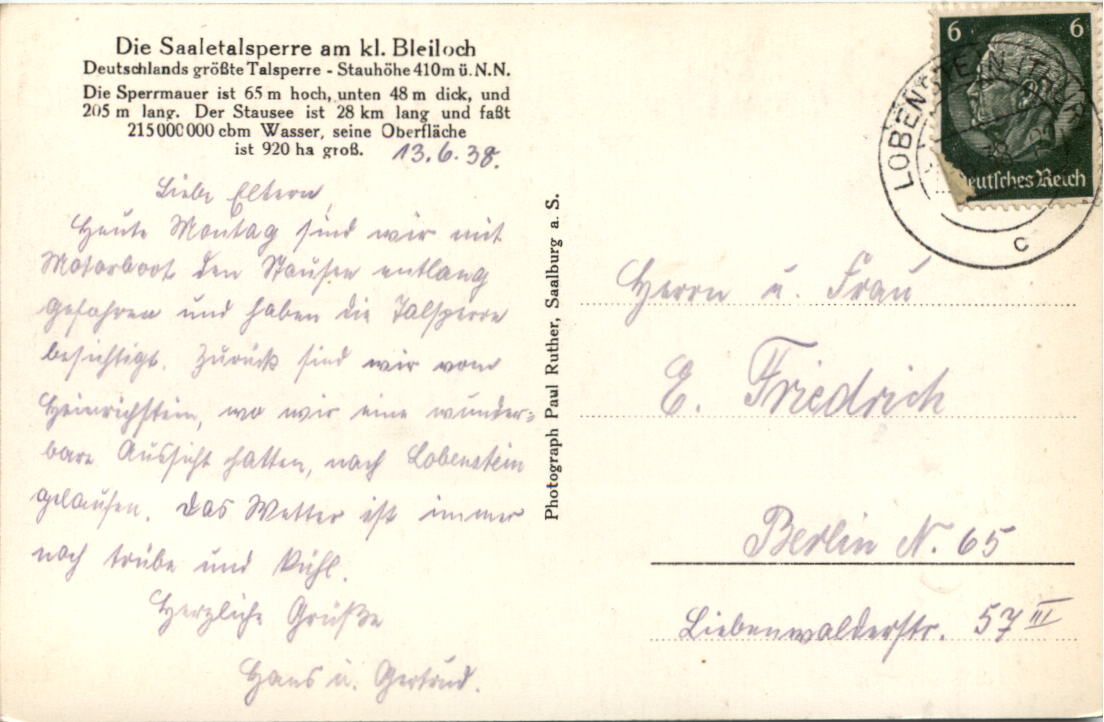 Die Saaletalsperre am kl. Bleiloch
Deutschlands größte Talsperre - Stauhöhe 410m ü.N.N.
Die Sperrmauer ist 65 m hoch, unten 48 m dick, und
205 m lang. Der Stausee ist 28 km lang und faßt
215000000 cbm Wasser, seine Oberfläche
ist 920 ha groß.
13.6.38.
Liebe Eltern,
Heute Montag sind wir mit
Motorboot den Stausee entlang
gefahren und haben die Talsperre
besichtigt. Zurück sind wir vom
Heinrichstein, wo wir eine wunder=
bare Aussicht hatten, nach Lobenstein
gelaufen. Das Wetter ist immer
noch trübe und kühl.
Herzliche Grüße
Hans u. Gertrud.
Photograph Paul Ruther, Saalburg a. S.
6 6
Deutsches Reich
LOBENSTEIN (THÜR)
c
Herrn u. Frau
E. Friedrich
Berlin N. 65
Liebenwalderstr. 57 III